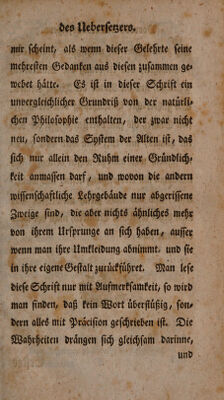 des Uebersetzers.
mir scheint, als wenn dieser Gelehrte seine
mehresten Gedanken aus diesen zusammen ge-
webet hätte. Es ist in dieser Schrift ein
unvergleichlicher Grundriß von der natürli-
chen Philosophie enthalten, der zwar nicht
neu, sondern das System der Alten ist, das
sich nur allein den Ruhm einer Gründlich-
keit anmassen darf, und wovon die andern
wissenschaftliche Lehrgebäude nur abgerissene
Zweige sind, die aber nichts ähnliches mehr
von ihrem Ursprunge an sich haben, ausser
wenn man ihre Umkleidung abnimmt, und sie
in ihre eigene Gestalt zurückführet. Man lese
diese Schrift nur mit Aufmerksamkeit, so wird
man finden, daß kein Wort überflüßig, son-
dern alles mit Präcision geschrieben ist. Die
Wahrheiten drängen sich gleichsam darinne,
und